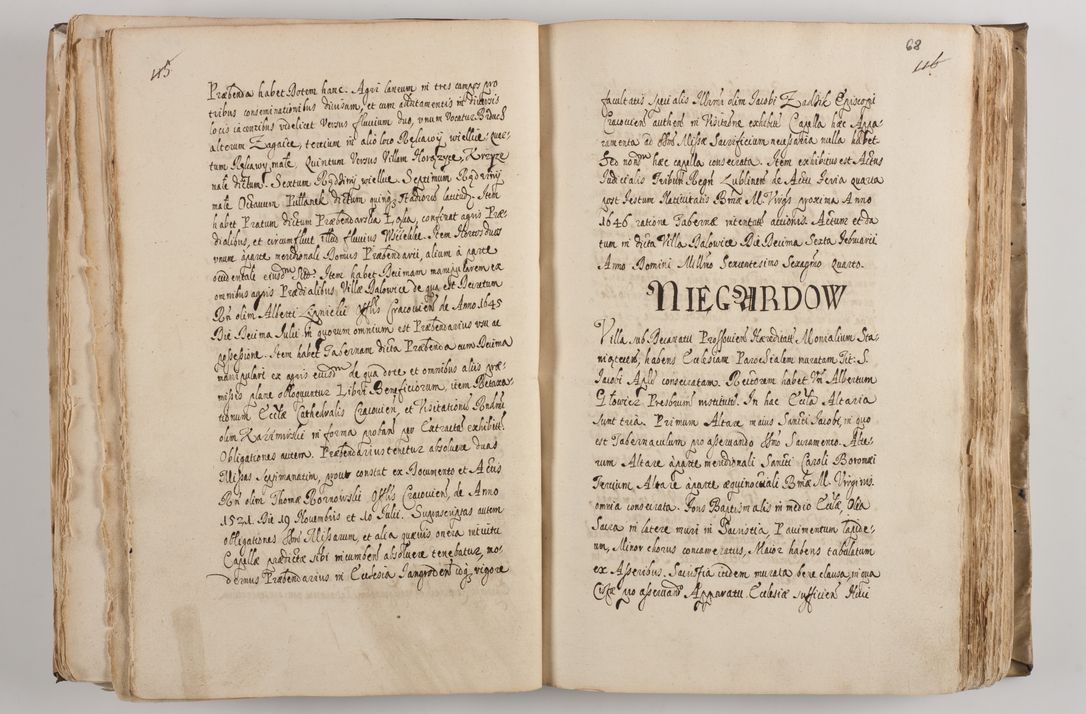 115
Præbenda habet Dotem hanc. Agri laneum in tres campos pro
tribus conseminationibus diuisam, et cum adiutamentis in diuersis
locis iacentibus videlicet versus fluuium duo, vnum vocatur
alterum Zagaice, tertium in alio loco Rekawy wielkie, quar-
tum Rekawy małe, Quintum versus Villam
małe dictum. Sextum wielkie, Septimum
małe Octauum dictum quinque latitud: Item
habet Pratum dictum Præbendarska Łąka, confinat agris Præ-
dialibus, et circumfluit illud fluuius Item Hortos duos
vnum à parte meridionali Domus Præbendarii, alium à parte
occidentali eiusdm Item habet Decimam manipularem ex
omnibus agris Prædialibus Villæ Balowice de qua est Decretum
Rn olim Alberti Offlis Cracouien de Anno 1645
Die Decima Iulii in quorum omnium est Præbendarius vsu ac
possessione. Item habet Tabernam dicta Præbenda cum Decima
manipulari ex agris eiusdm de qua dote et omnibus aliis præ-
missis plane obloquuntur Libri Beneficiorum, item Retaxa-
tionum Ecclæ Cathedralis Cracouien, et Visitationis Rndmi
olim Kazimirskii in forma probant per Extractus exhibiti.
Obligationes autem. Præbendarius tenetur absoluere duas
Missas Septimanatim, prout constat ex Documento et Actis
Rn olim Thomæ Offlis Cracouien, de Anno
1521. Die 19 Nouembris et 10 Iulii. Suprascriptas autem
obligationes Missarum, et alia quæuis onera intuitu
Capellæ prædictæ sibi incumben absoluere tenebatur, mo-
dernus Præbendarius in Ecclesia Iangroden idq vigore
68
116
facultatis specialis Illrmi olim Iacobi Zadzik Episcopi
Cracouien authen in Visitatne exhibita Capella hæc Appa-
ramenta ad Missæ Sacrificium necessaria nulla habet
Sed hæc capella consecrata. Item exhibitus est Actus
Iudicialis Tribun Regni Lublinen de Actu Feria quarta
post Festum Natiuitatis Bmæ M. Virgs proxima Anno
1646 ratione Tabernæ intentat actionis. Actum et da
tum in dicta Villa Balowice Die Decima Sexta Februarii
Anno Domini Millmo Sexcentesimo Sexagmo quarto.
NIEGARDOW
Villa sub Decanatu Prossouien Hæreditate Monialium Sta-
niątecen, habens Ecclesiam Parochialem muratam Tit: S.
Iacobi Apli consecratam. Rectorem habet Vn Albertum
Głowicz Presbrum institutum. In hac Eccla Altaria
sunt tria. Primum Altare maius Sancti Iacobi, in quo
est Tabernaculum pro asseruando Ssmo Sacramento. Alte-
rum Altare à parte meridionali Sancti Caroli Boromæi
Tertium Altare à parte æquinoctiali Bmæ M. Virginis.
omnia consecrata. Fons Baptismalis in medio Ecclæ, Olea
Sacra in latere muri in Sacristia, Pauimentum lapide-
um, Minor chorus concameratus, Maior habens tabulatum
ex Asseribus. Sacristia itidem murata bene clausa, in qua
Cistæ pro asseruand Apparatu Ecclesiæ sufficien